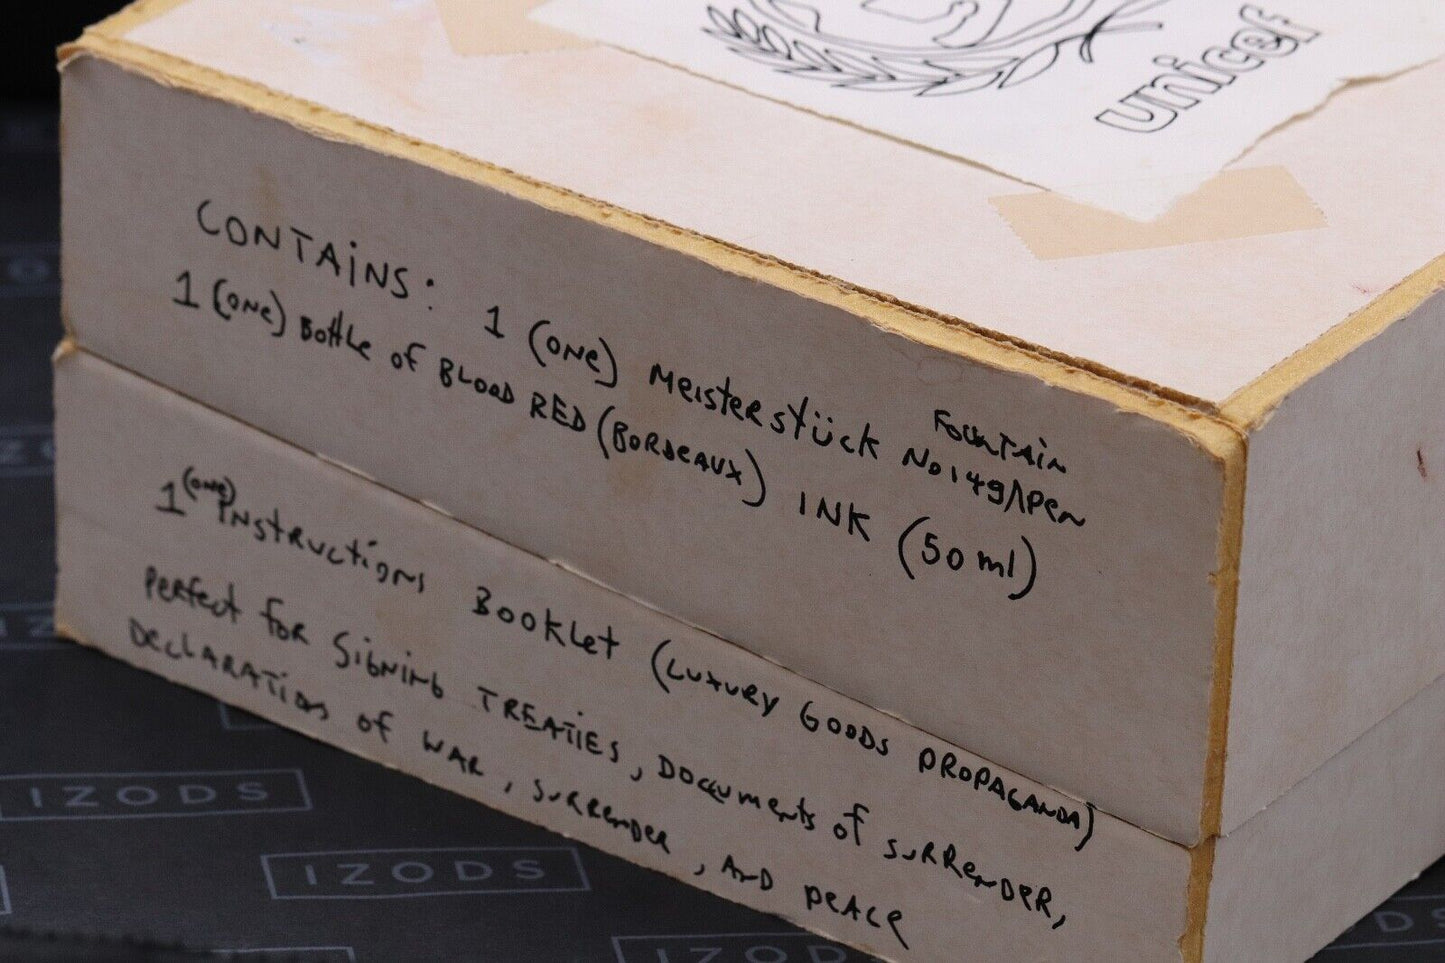 unicef
CONTAINS: 1 (ONE) MEISTERSTÜCK No149 FOUNTAIN PEN
1 (ONE) BOTTLE OF BLOOD RED (BORDEAUX) INK (50 ml)
1 (ONE) INSTRUCTIONS BOOKLET (LUXURY GOODS PROPAGANDA)
PERFECT FOR SIGNING TREATIES, DOCUMENTS OF SURRENDER,
DECLARATIONS OF WAR, SURRENDER, AND PEACE
IZODS
IZODS
IZODS